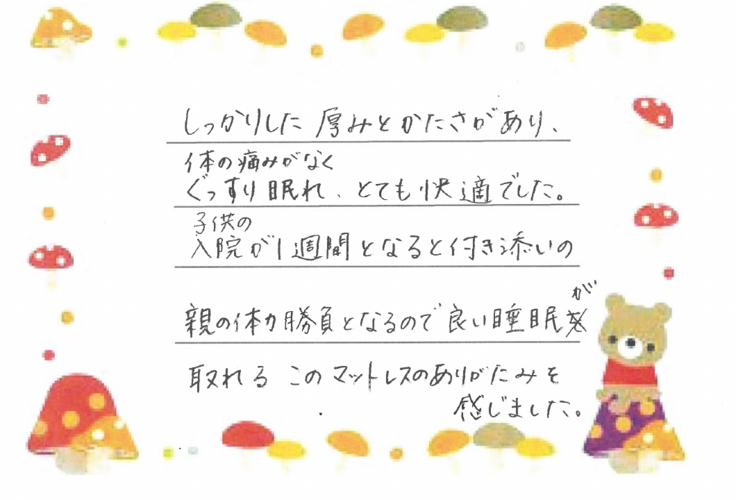 しっかりした 厚みとかたさがあり、
体の痛みがなく
ぐっすり眠れ、とても快適でした。
子供の
入院が1週間となると付き添いの
が
親の体力勝負となるので良い睡眠
取れる このマットレスのありがたみを
感じました。